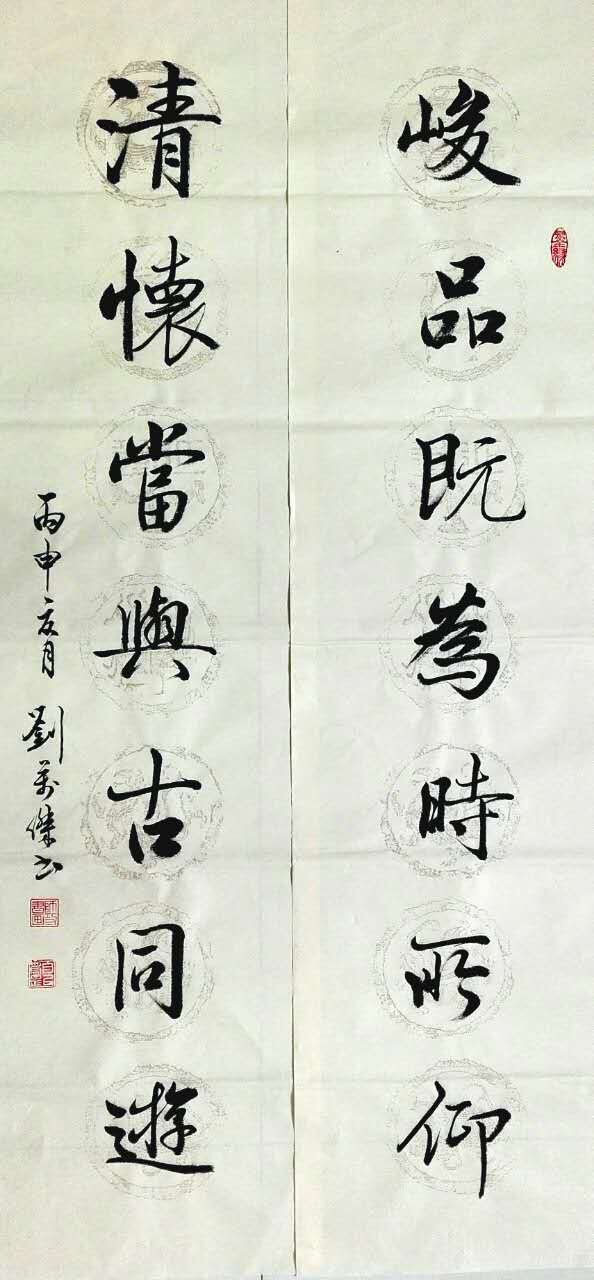 峻品既為時所仰
清懷當與古同遊
丙申夏月 劉萬傑書